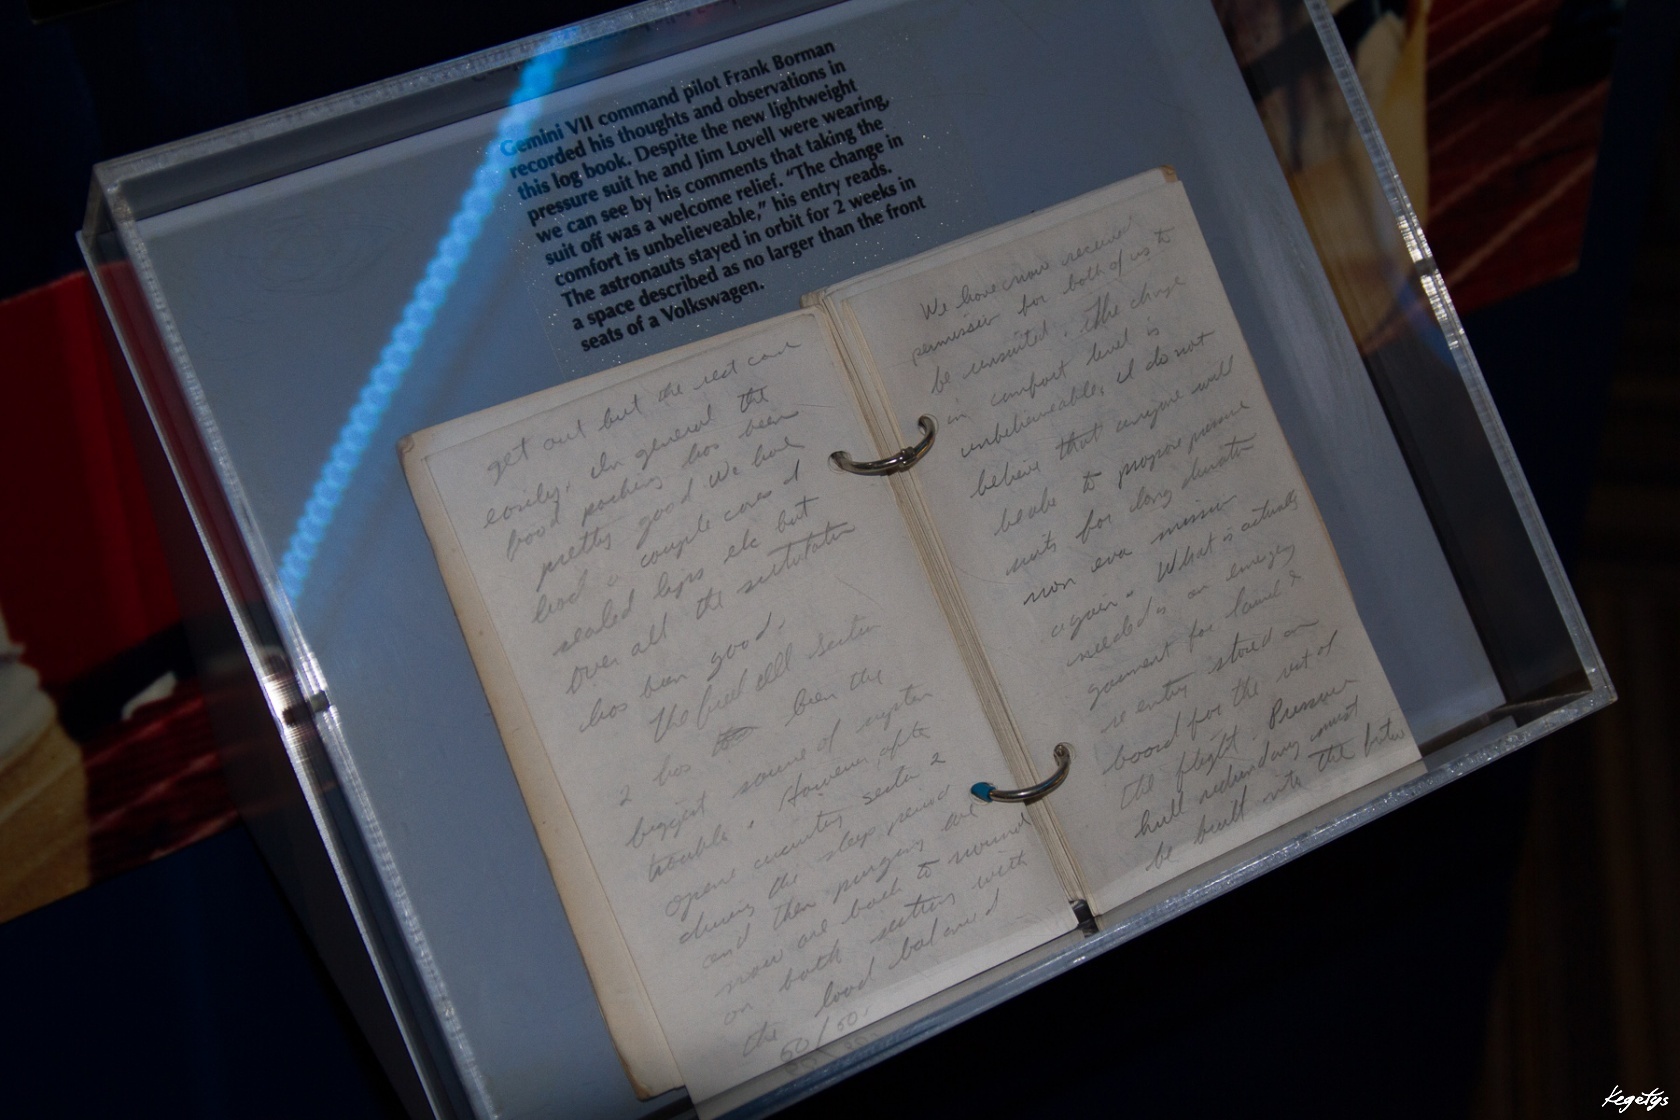 Gemini VII command pilot Frank Borman
recorded his thoughts and observations in
this log book. Despite the new lightweight
pressure suit he and Jim Lovell were wearing,
we can see by his comments that taking the
suit off was a welcome relief. “The change in
comfort is unbelieveable,” his entry reads.
The astronauts stayed in orbit for 2 weeks in
a space described as no larger than the front
seats of a Volkswagen.
get out but the rest came
easily. In general the
food packing has been
pretty good We have
had a couple cases of
sealed etc but
over all the
has been good.
The fuel cell section
2 has been the
biggest source of system
trouble. However, after
opene circuiting section 2
during the sleep period
and then purging we
now are back to normal
on both sections with
the load balanced
50/50.
We have now received
permission for both of us to
be unsuited. The change
in comfort level is
unbelieveable, I do not
believe that anyone will
be able to propose pressure
suits for long duration
non eva mission
again. What is actually
needed is an emergency
garment for launch &
re entry stored on
board for the rest of
the flight. Pressure
hull redundancy must
be built into the future
Kegetys